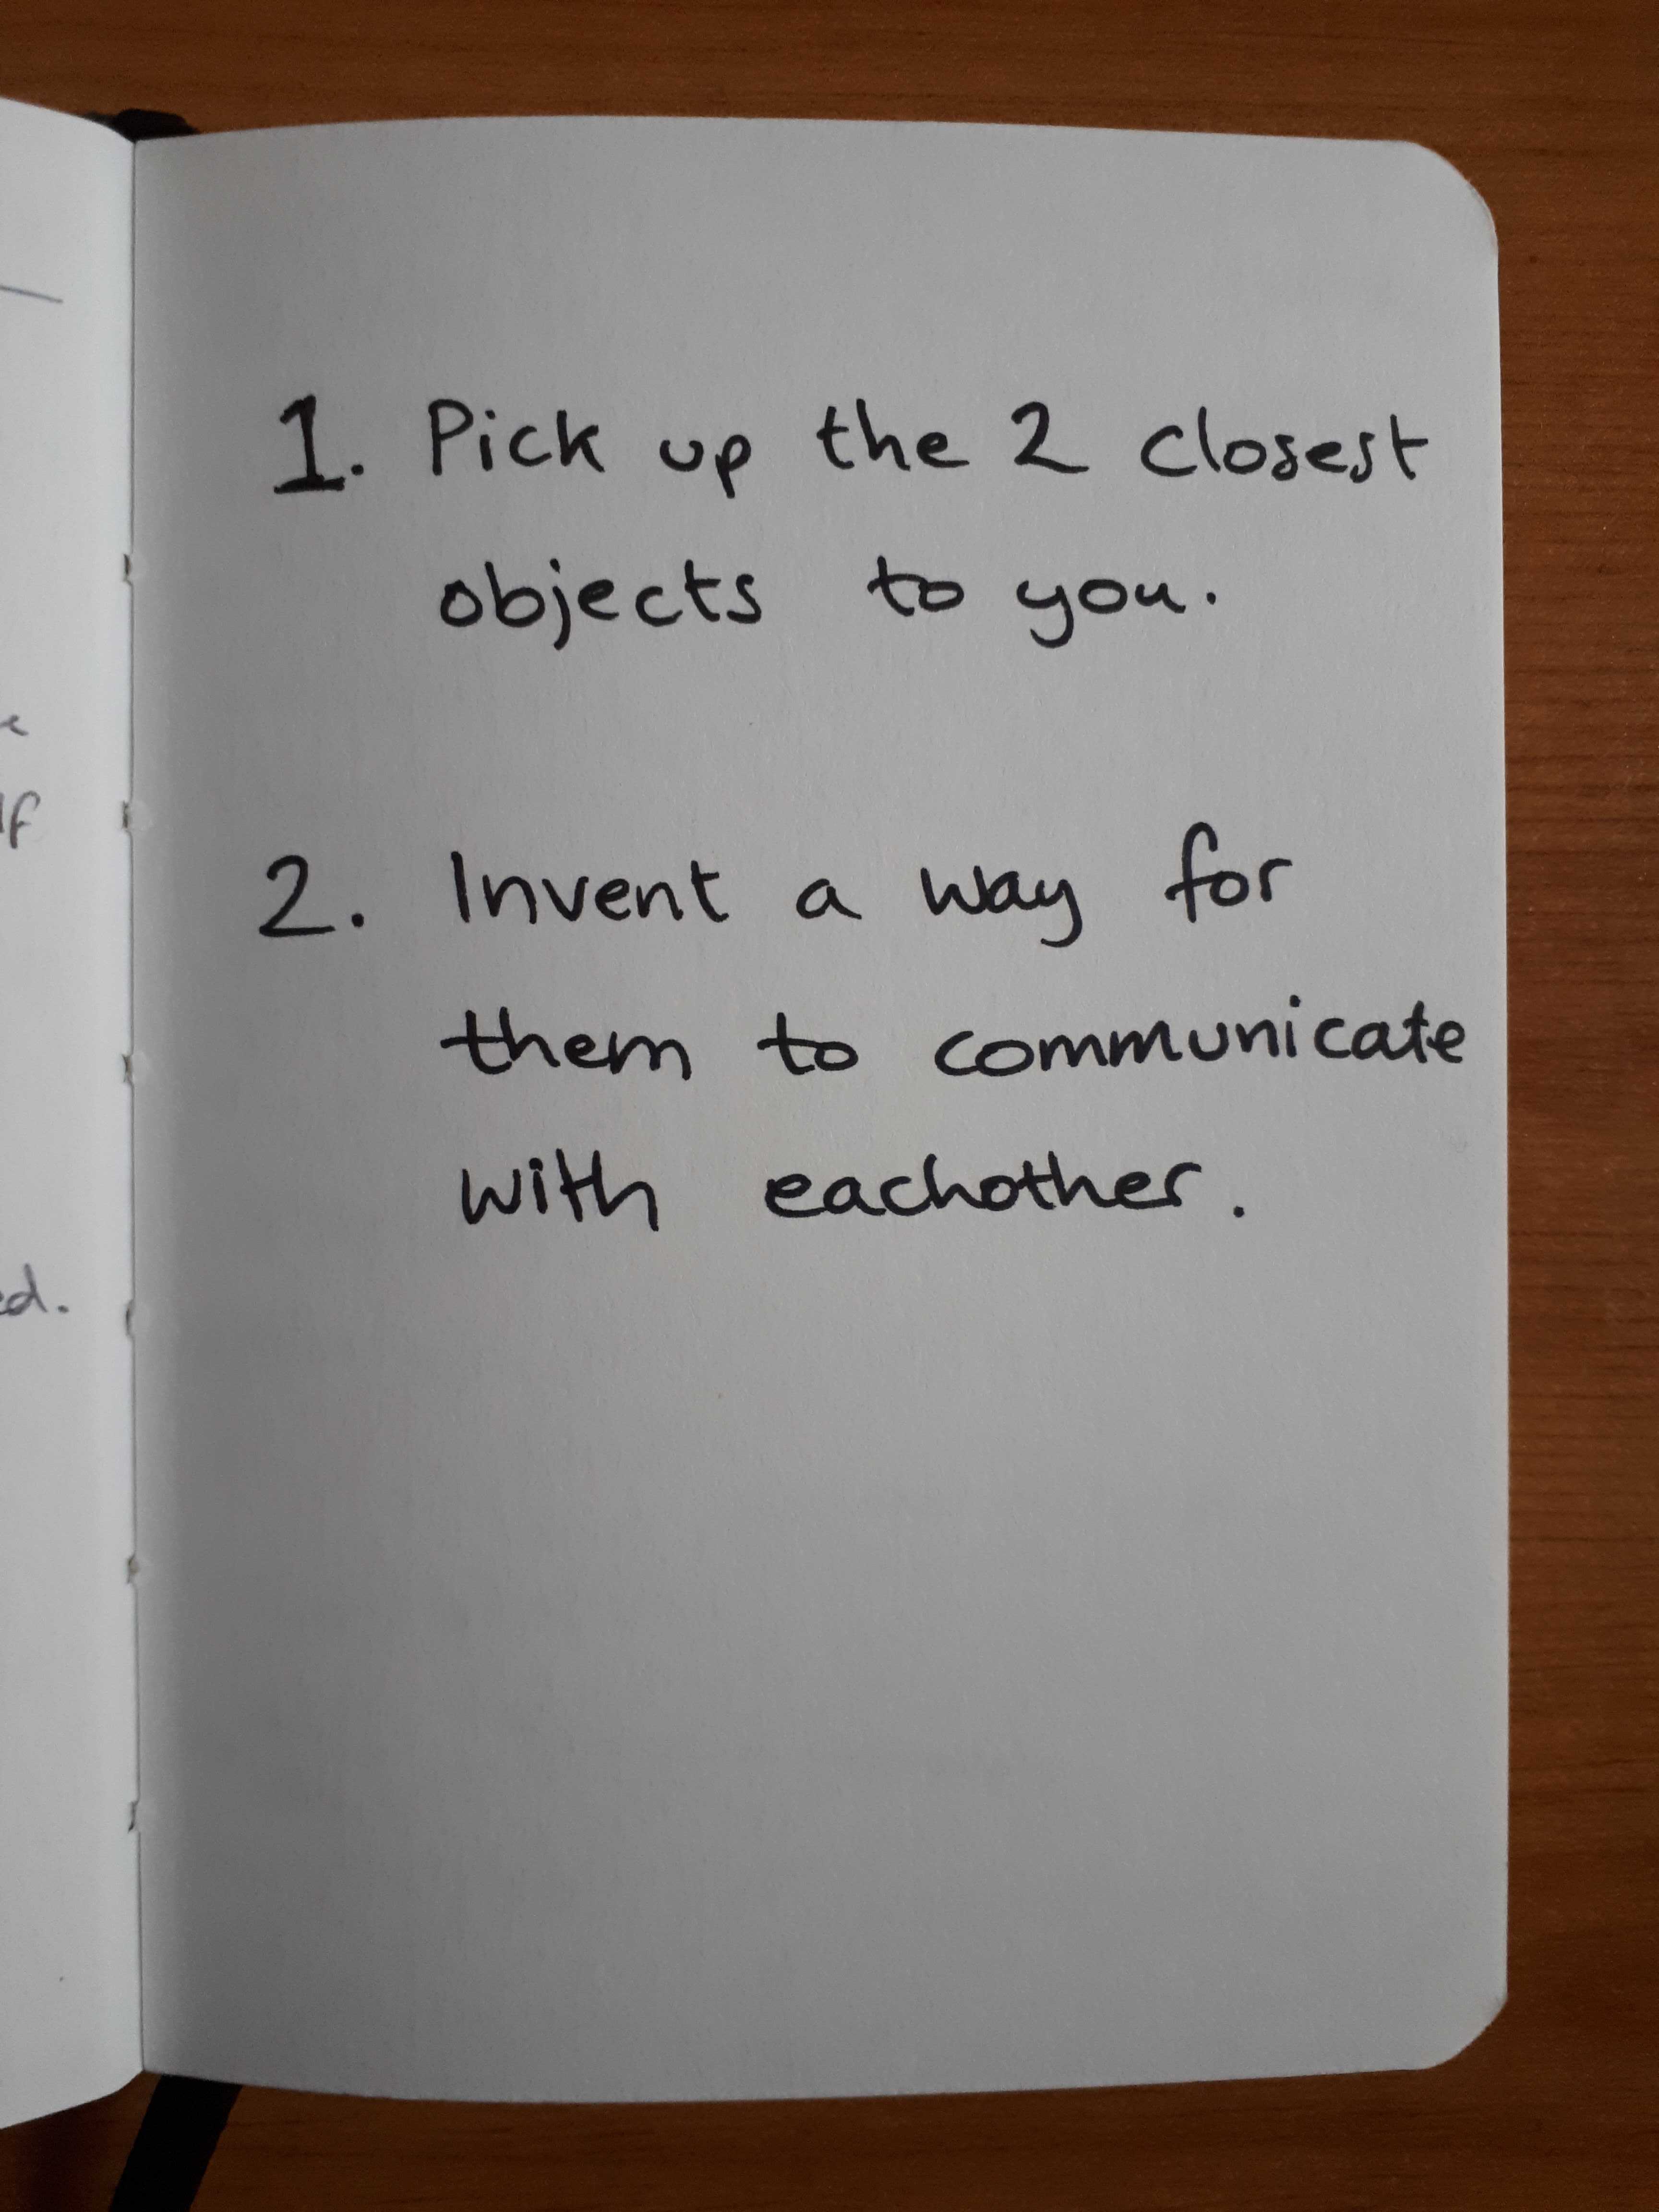 1. Pick up the 2 closest
objects to you.
2. Invent a way for
them to communicate
with eachother.